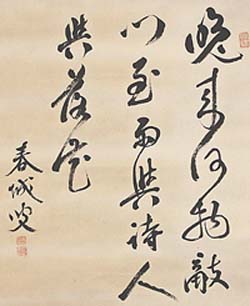 晩来何物敲
門至雨與詩人
與落花
春城叟